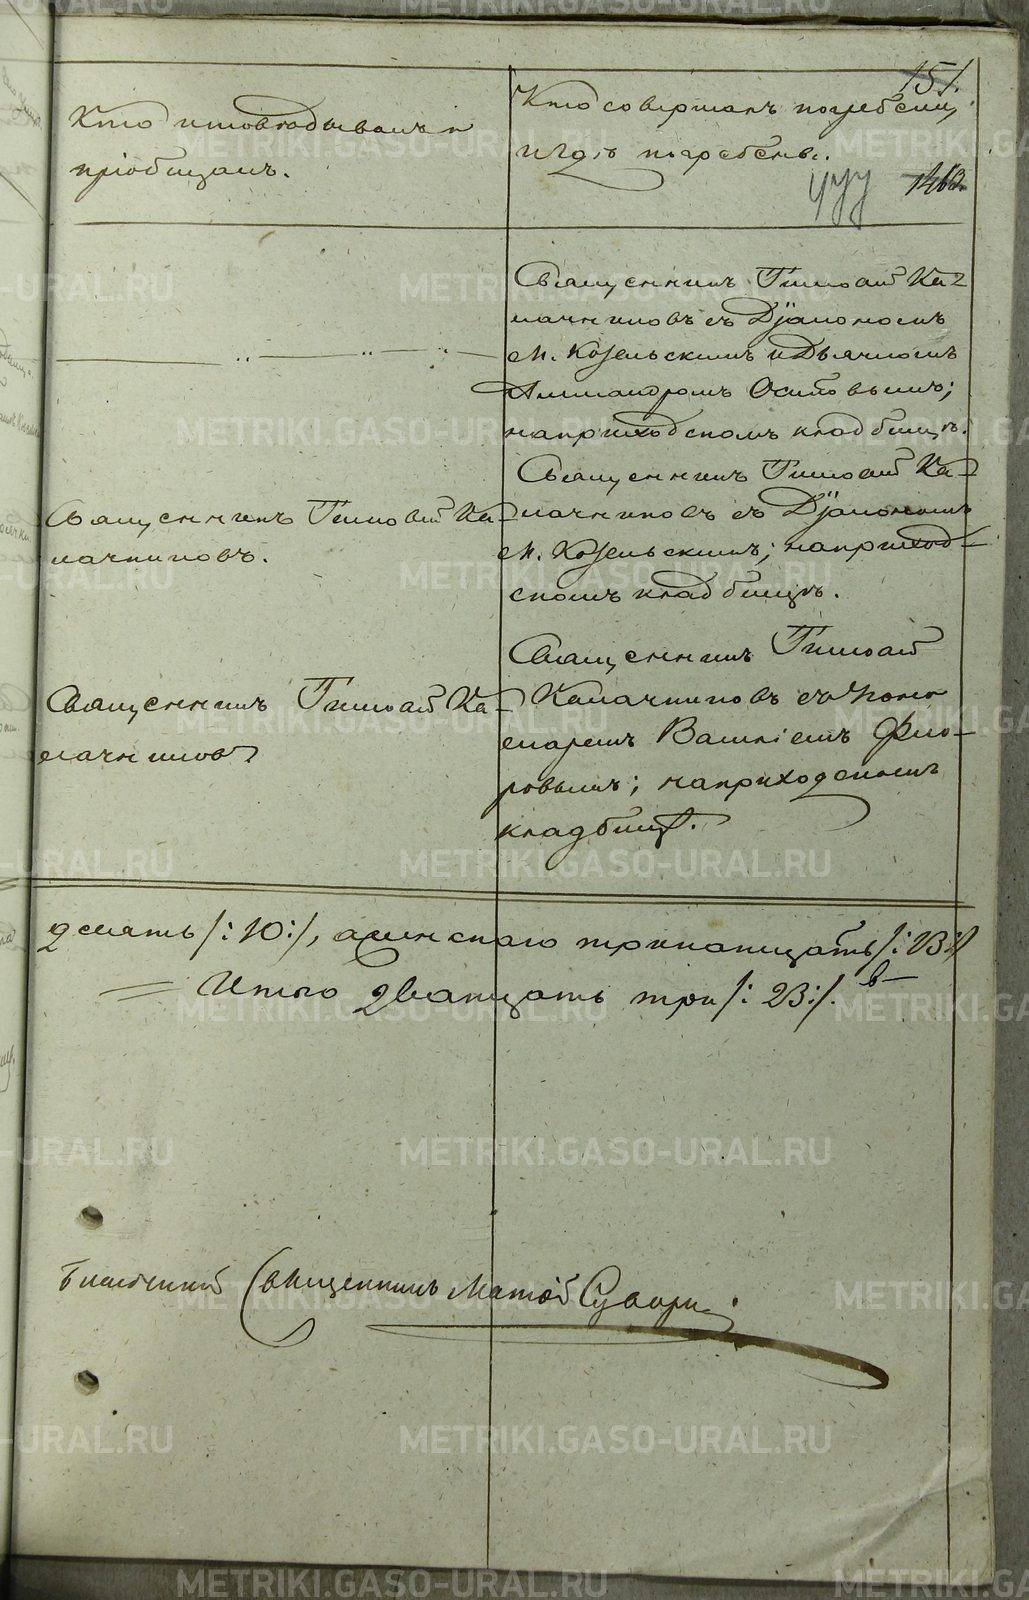 151.
Кто исповѣдывалъ и
пріобщалъ.
Кто совершалъ погребеніе
и гдѣ погребены.
Священникъ Тимофей Ка-
лачниковъ съ Діакономъ
М. Козельскимъ и Дьячкомъ
Александромъ Осиповымъ;
на приходскомъ кладбищѣ.
Священникъ Тимофей Ка-
лачниковъ.
Священникъ Тимофей Ка-
лачниковъ съ Діакономъ
М. Козельскимъ; на приход-
скомъ кладбищѣ.
Священникъ Тимофей Ка-
лачниковъ
Священникъ Тимофей
Калачниковъ съ Поно-
маремъ Василіемъ Фло-
ровымъ; на приходскомъ
кладбищѣ.
десять /:10:/, а женскаго тринатцать /:13:/
Итого дватцать три /:23:/.
Священникъ Матѳей
METRIKI.GASO-URAL.RU